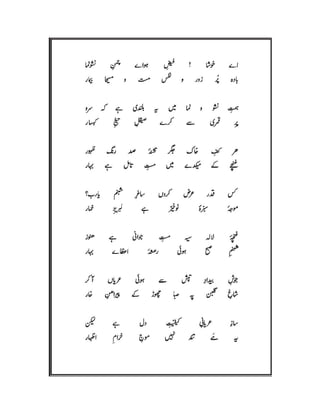 اے خوشا ! فیضِ ہوائے چمنِ نشوونما
بادہ پُر زور و نفس مست و مسیحا بیمار
ہمتِ نشو و نما میں یہ بلندی ہے کہ سرو
پرِ قمری سے کرے صیقلِ تیغِ کہسار
ہر کفِ خاک جگر تشنۂ صد رنگ ظہور
غنچے کے میکدے میں مستِ تامل ہے بہار
کس قدر عرض کروں ساغرِ شبنم یارب؟
موجۂ سبزۂ نوخیز ہے لبریزِ خمار
غنچۂ لالہ سیہ مستِ جوانی ہے ہنوز
شبنمِ صبح ہوئی رعشۂ اعضائے بہار
جوشِ بیدادِ تپش سے ہوئی عریاں آخر
شاخِ گلبن پہ صبا چھوڑ کے پیراہنِ خار
سازِ عریانیِ کیفیتِ دل ہے لیکن
یہ مئے تند نہیں موجِ خرامِ اظہار